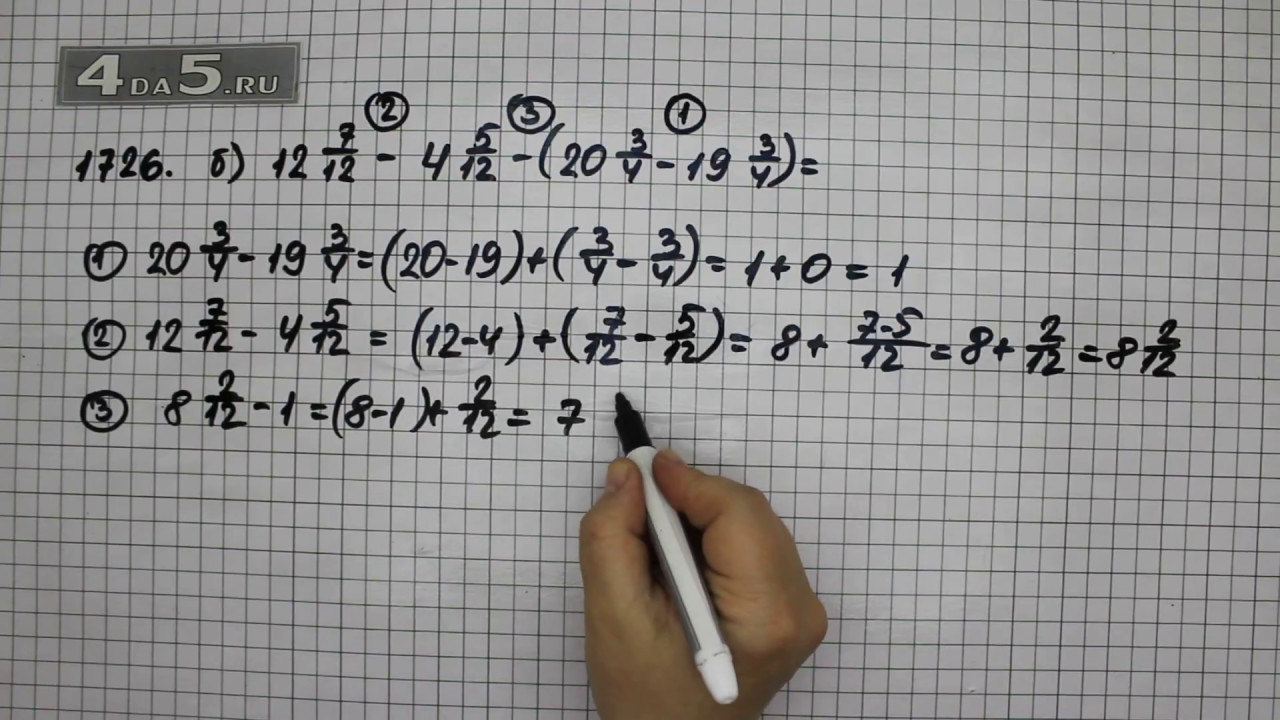 4DA5.RU
② ③ ①
1726. б) 12 7/12 - 4 5/12 - (20 3/4 - 19 3/4) =
① 20 3/4 - 19 3/4 = (20-19) + (3/4 - 3/4) = 1 + 0 = 1
② 12 7/12 - 4 5/12 = (12-4) + (7/12 - 5/12) = 8 + 7-5/12 = 8 + 2/12 = 8 2/12
③ 8 2/12 - 1 = (8-1) + 2/12 = 7